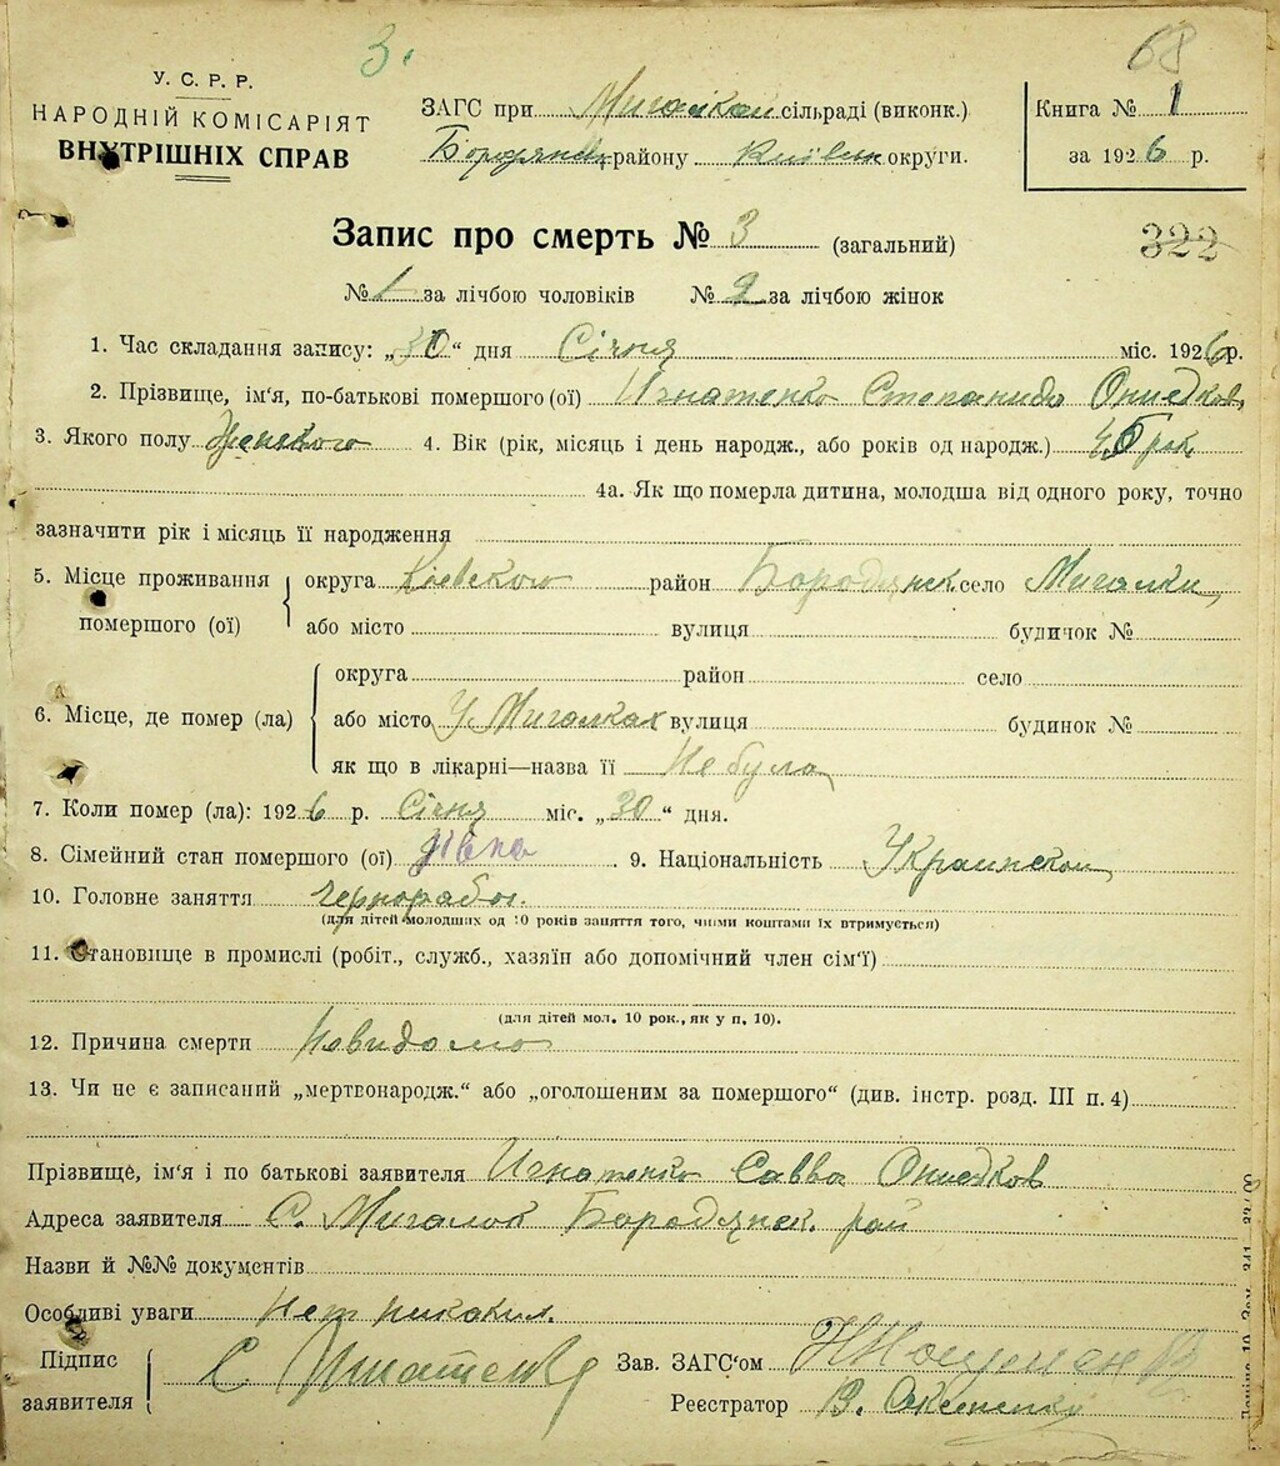 3.
68
У. С. Р. Р.
НАРОДНІЙ КОМІСАРІЯТ
ВНУТРІШНІХ СПРАВ
ЗАГС при Мигалкой сільраді (виконк.)
Бородянск району Київск округи.
Книга № 1
за 1926 р.
322
Запис про смерть № 3 (загальний)
№ 1 за лічбою чоловіків № 2 за лічбою жінок
1. Час складання запису: „30“ дня Січня міс. 1926 р.
2. Прізвище, ім'я, по-батькові помершого (ої) Игнатенко Степанида
3. Якого полу Женского 4. Вік (рік, місяць і день народж., або років од народж.)
4а. Як що померла дитина, молодша від одного року, точно
зазначити рік і місяць її народження
5. Місце проживання помершого (ої) округа Киевского район Бородянск село Мигалки
або місто вулиця будинок №
6. Місце, де помер (ла) округа район село
або місто У Мигалках вулиця будинок №
як що в лікарні—назва її Не була
7. Коли помер (ла): 1926 р. Січня міс. „30“ дня.
8. Сімейний стан помершого (ої) дівка. 9. Національність Украинской
10. Головне заняття чернорабоч.
(для дітей молодших од 10 років заняття того, чиїми коштами їх втримується)
11. Становище в промислі (робіт., служб., хазяїн або допомічний член сім'ї)
(для дітей мол. 10 рок., як у п. 10).
12. Причина смерти Невидомо
13. Чи не є записаний „мертвонародж.“ або „оголошеним за помершого“ (див. інстр. розд. III п. 4)
Прізвище, ім'я і по батькові заявителя Игнатенко Савва
Адреса заявителя С. Мигалок Бородянск. рай
Назви й №№ документів
Особливі уваги Нет никаких.
Підпис заявителя С Игнатенко Зав. ЗАГС'ом
Реєстратор В.